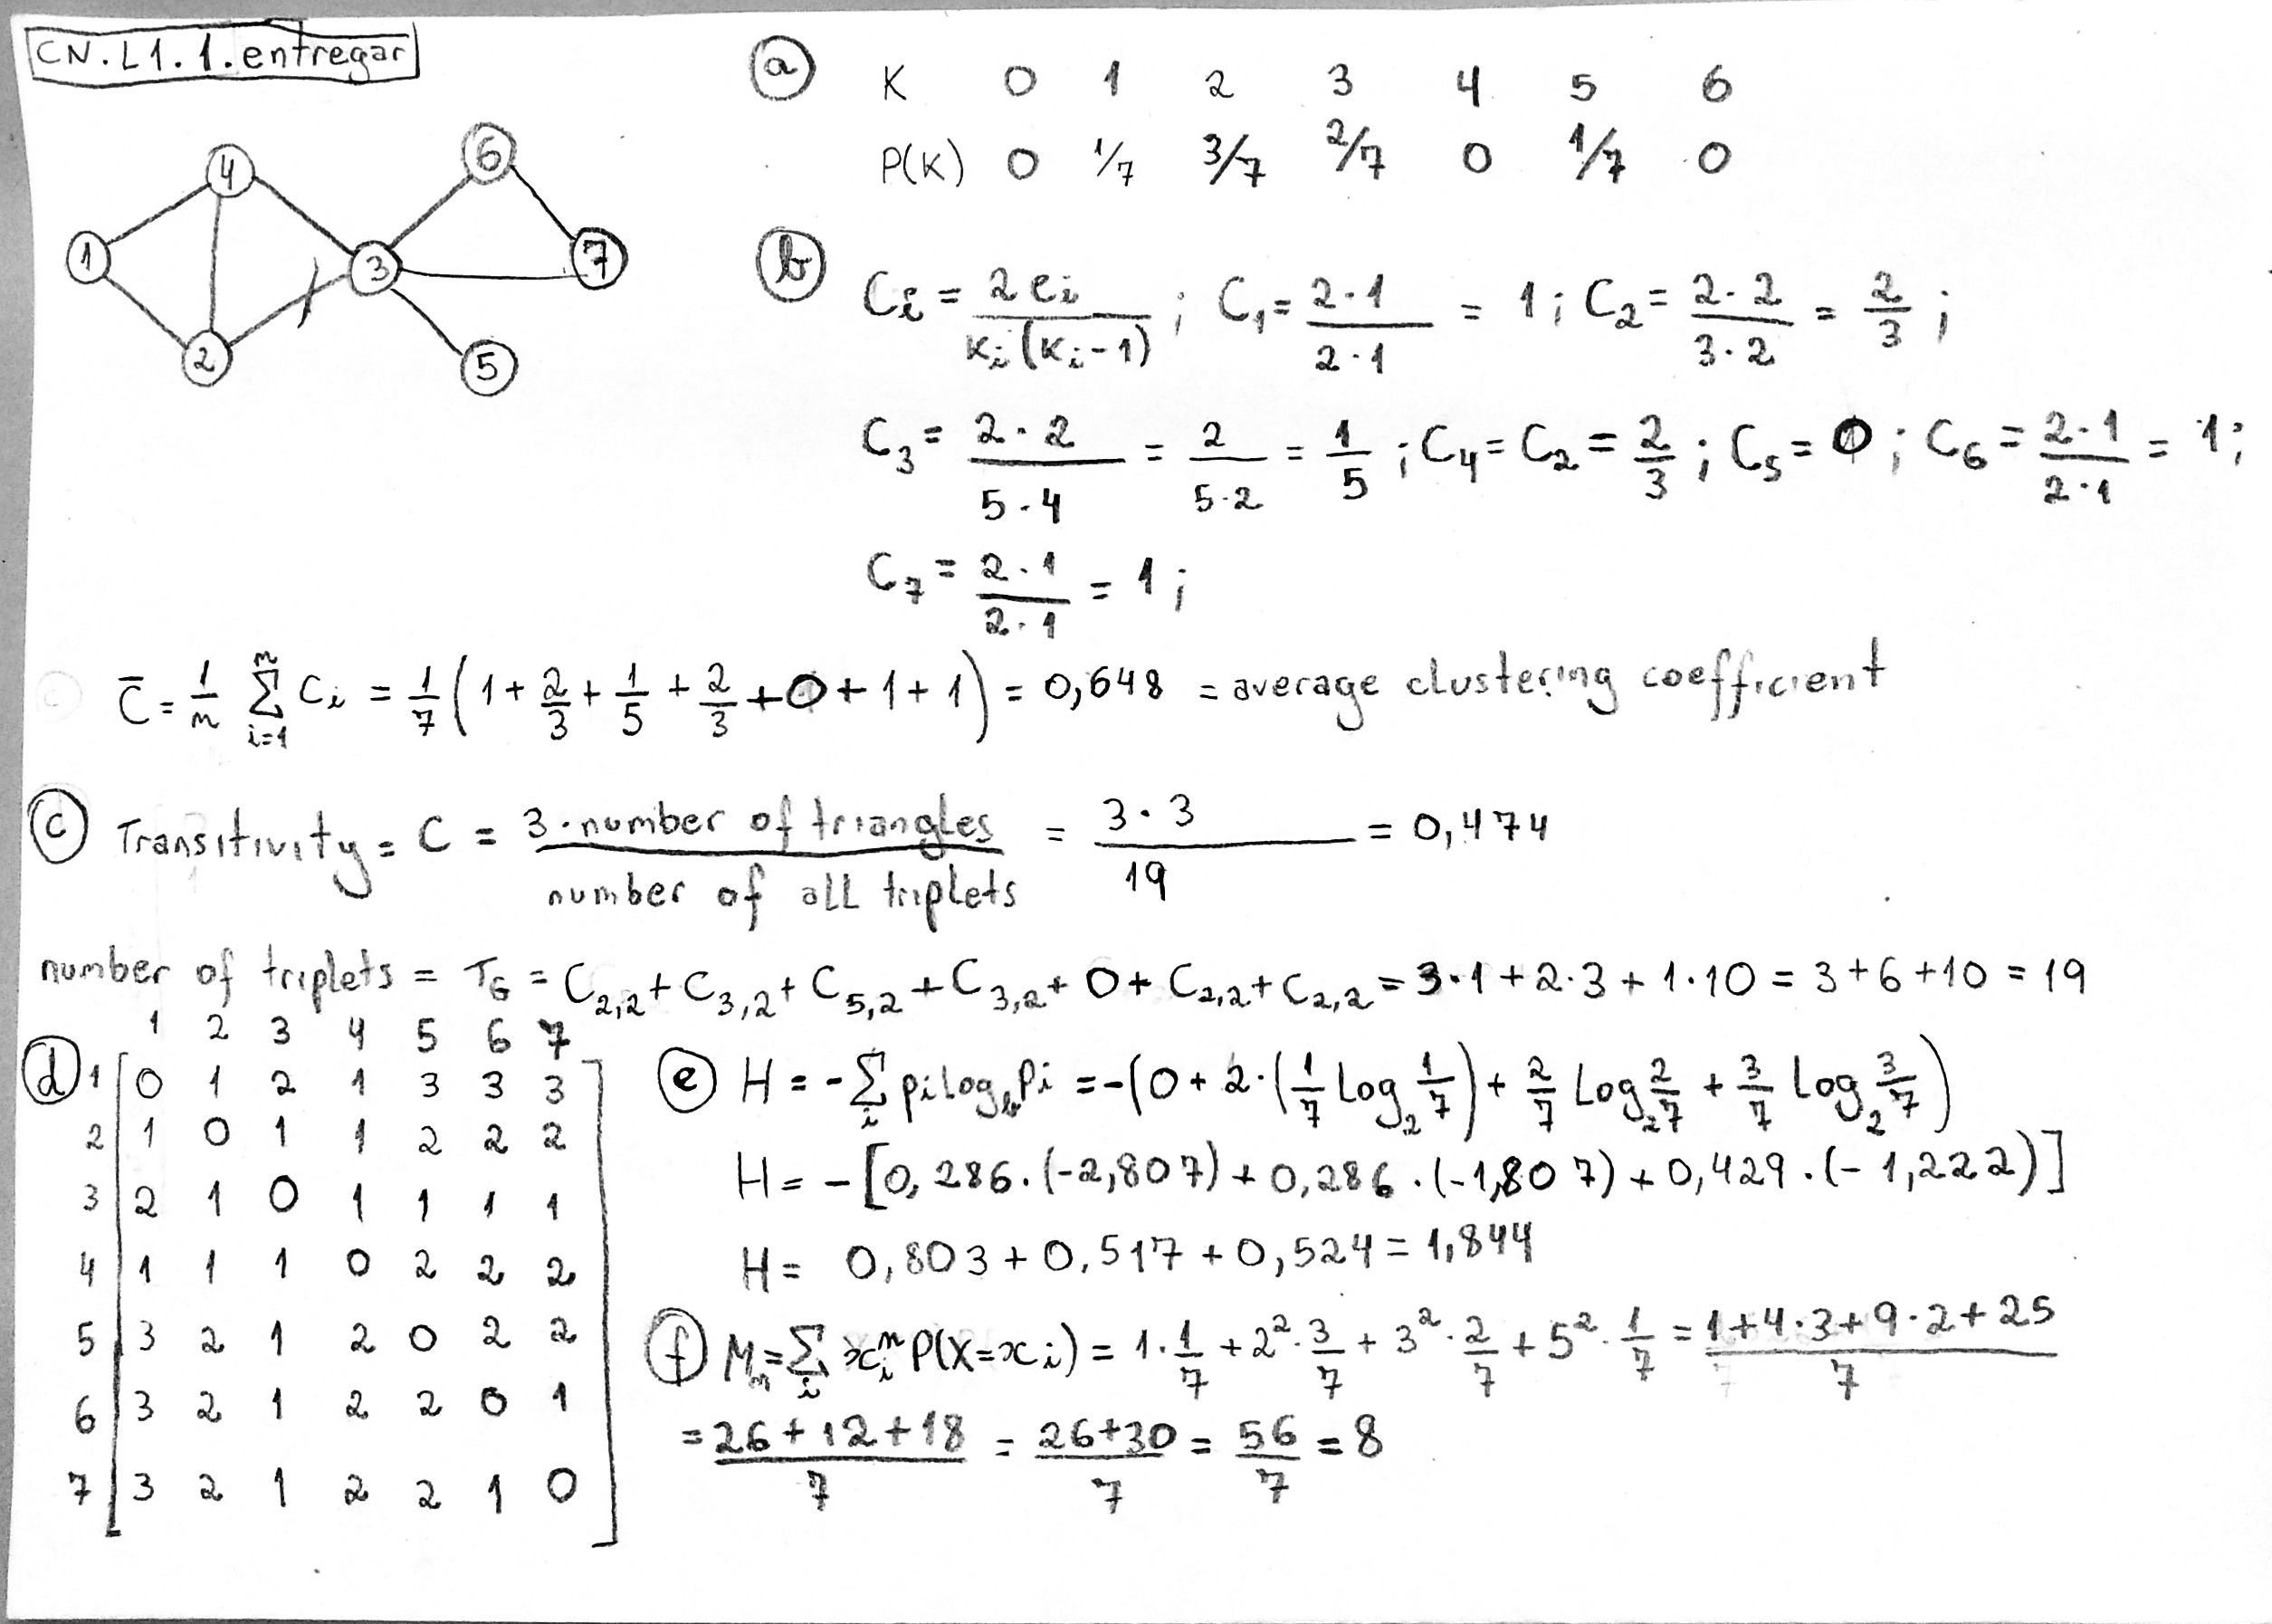 CN.L1.1.entregar
4
6
1
3
7
2
5
(a) K 0 1 2 3 4 5 6
P(K) 0 1/7 3/7 2/7 0 1/7 0
(b) Ci = 2ei / Ki(Ki-1) ; C₁ = 2·1 / 2·1 = 1 ; C₂ = 2·2 / 3·2 = 2/3 ;
C₃ = 2·2 / 5·4 = 2 / 5·2 = 1/5 ; C₄ = C₂ = 2/3 ; C₅ = 0 ; C₆ = 2·1 / 2·1 = 1 ;
C₇ = 2·1 / 2·1 = 1 ;
C̄ = 1/n Σ_{i=1}^{n} Ci = 1/7 (1 + 2/3 + 1/5 + 2/3 + 0 + 1 + 1) = 0,648 = average clustering coefficient
(c) Transitivity = C = 3·number of triangles / number of all triplets = 3·3 / 19 = 0,474
number of triplets = T_G = C₂,₂ + C₃,₂ + C₅,₂ + C₃,₂ + 0 + C₂,₂ + C₂,₂ = 3·1 + 2·3 + 1·10 = 3 + 6 + 10 = 19
(d) 1 2 3 4 5 6 7
1 0 1 2 1 3 3 3
2 1 0 1 1 2 2 2
3 2 1 0 1 1 1 1
4 1 1 1 0 2 2 2
5 3 2 1 2 0 2 2
6 3 2 1 2 2 0 1
7 3 2 1 2 2 1 0
(e) H = -Σ_i pi log_b Pi = -(0 + 2·(1/7 Log₂ 1/7) + 2/7 Log₂ 2/7 + 3/7 Log₂ 3/7)
H = -[0,286·(-2,807) + 0,286·(-1,807) + 0,429·(-1,222)]
H = 0,803 + 0,517 + 0,524 = 1,844
(f) Mₙ = Σ_i xᵢⁿ P(X=xi) = 1·1/7 + 2²·3/7 + 3²·2/7 + 5²·1/7 = 1+4·3+9·2+25 / 7
= 26+12+18 / 7 = 26+30 / 7 = 56/7 = 8